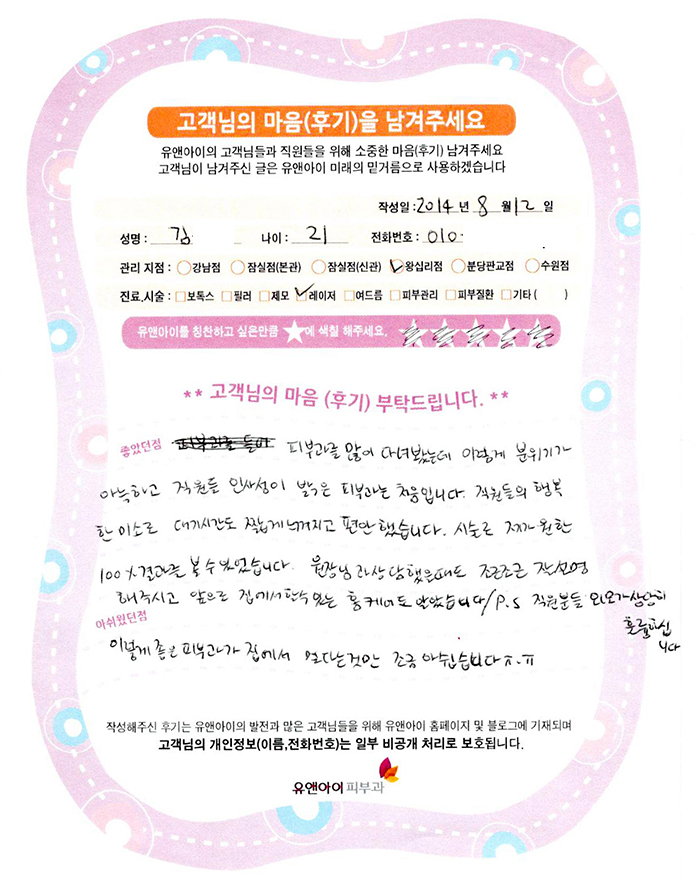 고객님의 마음(후기)을 남겨주세요
유앤아이의 고객님들과 직원들을 위해 소중한 마음(후기) 남겨주세요
고객님이 남겨주신 글은 유앤아이 미래의 밑거름으로 사용하겠습니다
작성일 : 2014 년 8 월 12 일
성명 : 김 나이 : 21 전화번호 : 010
관리 지점 : 강남점 잠실점(본관) 잠실점(신관) 왕십리점 분당판교점 수원점
진료.시술 : 보톡스 필러 제모 레이저 여드름 피부관리 피부질환 기타 ( )
유앤아이를 칭찬하고 싶은만큼 ★에 색칠 해주세요.
** 고객님의 마음 (후기) 부탁드립니다. **
좋았던점 피부과를 많이 다녀봤는데 이렇게 분위기가
아늑하고 직원들 인사성이 밝은 피부과는 처음입니다. 직원들의 행복
한 미소로 대기시간도 짧게 느껴지고 편안했습니다. 시술도 제가 원한
100% 결과를 볼 수 있었습니다. 원장님과 상담했을때도 조근조근 잘설명
해주시고 앞으로 집에서 할수있는 홈케어도 알았습니다/P.S 직원분들 외모가 상당히
훌륭하십
니다
아쉬웠던점
이렇게 좋은 피부과가 집에서 멀다는것만 조금 아쉽습니다 ㅠ.ㅠ
작성해주신 후기는 유앤아이의 발전과 많은 고객님들을 위해 유앤아이 홈페이지 및 블로그에 기재되며
고객님의 개인정보(이름,전화번호)는 일부 비공개 처리로 보호됩니다.
유앤아이피부과